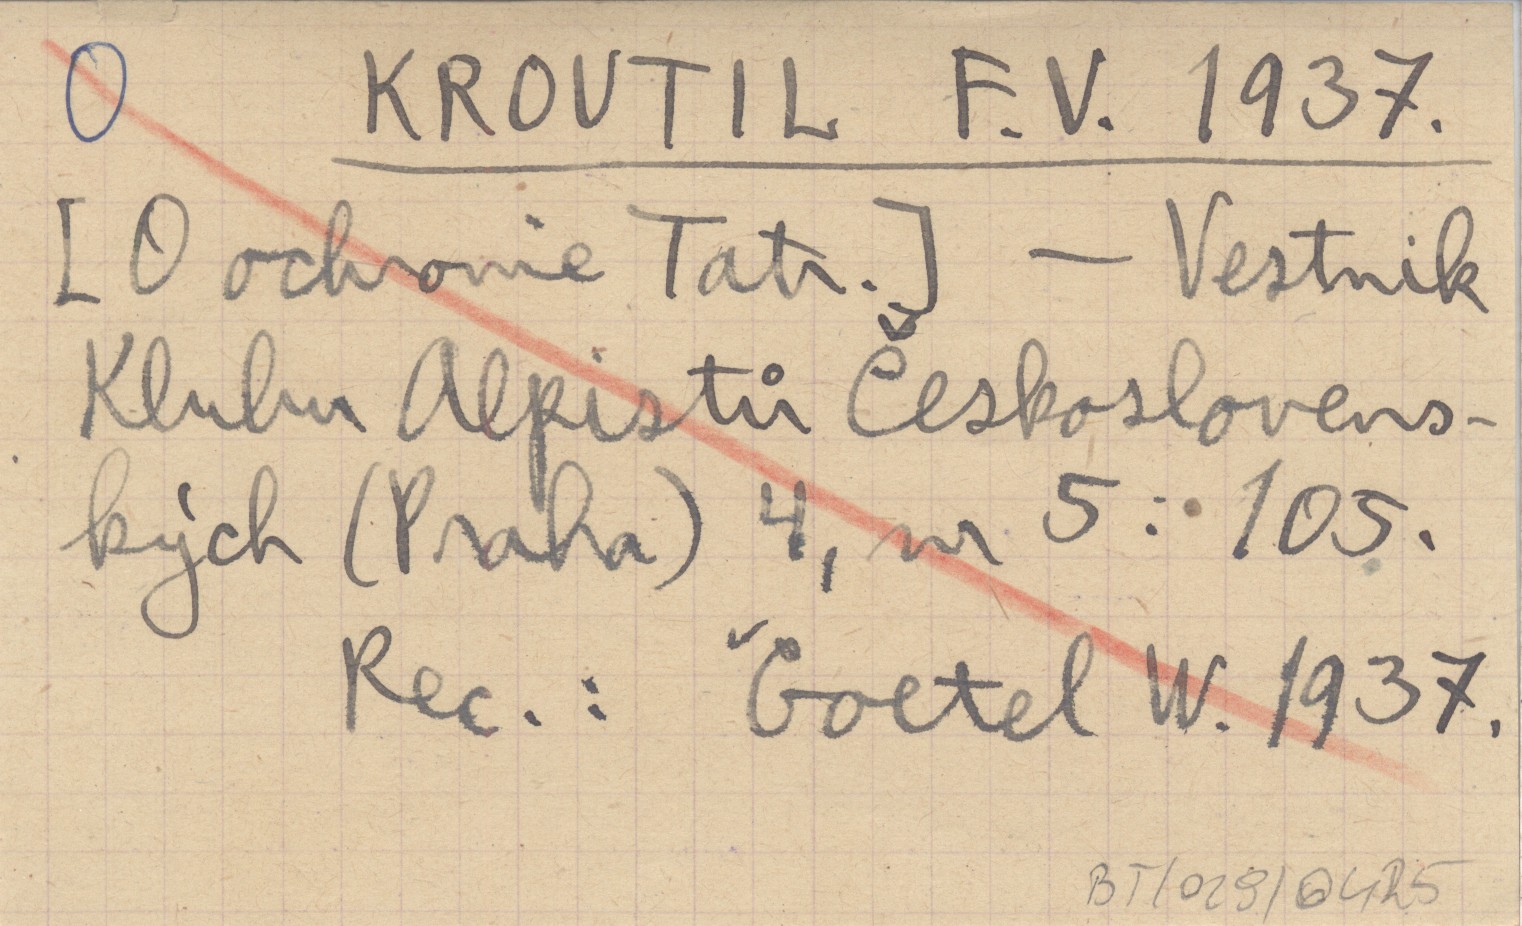 O KROUTIL F.V. 1937.
[O ochronie Tatr.] — Vestnik
Klubu Alpistů Českoslovens-
kých (Praha) 4, nr 5: 105.
Rec.: Goetel W. 1937.